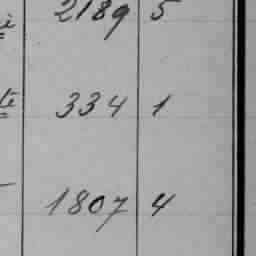 2189 5
te 334 1
1807 4